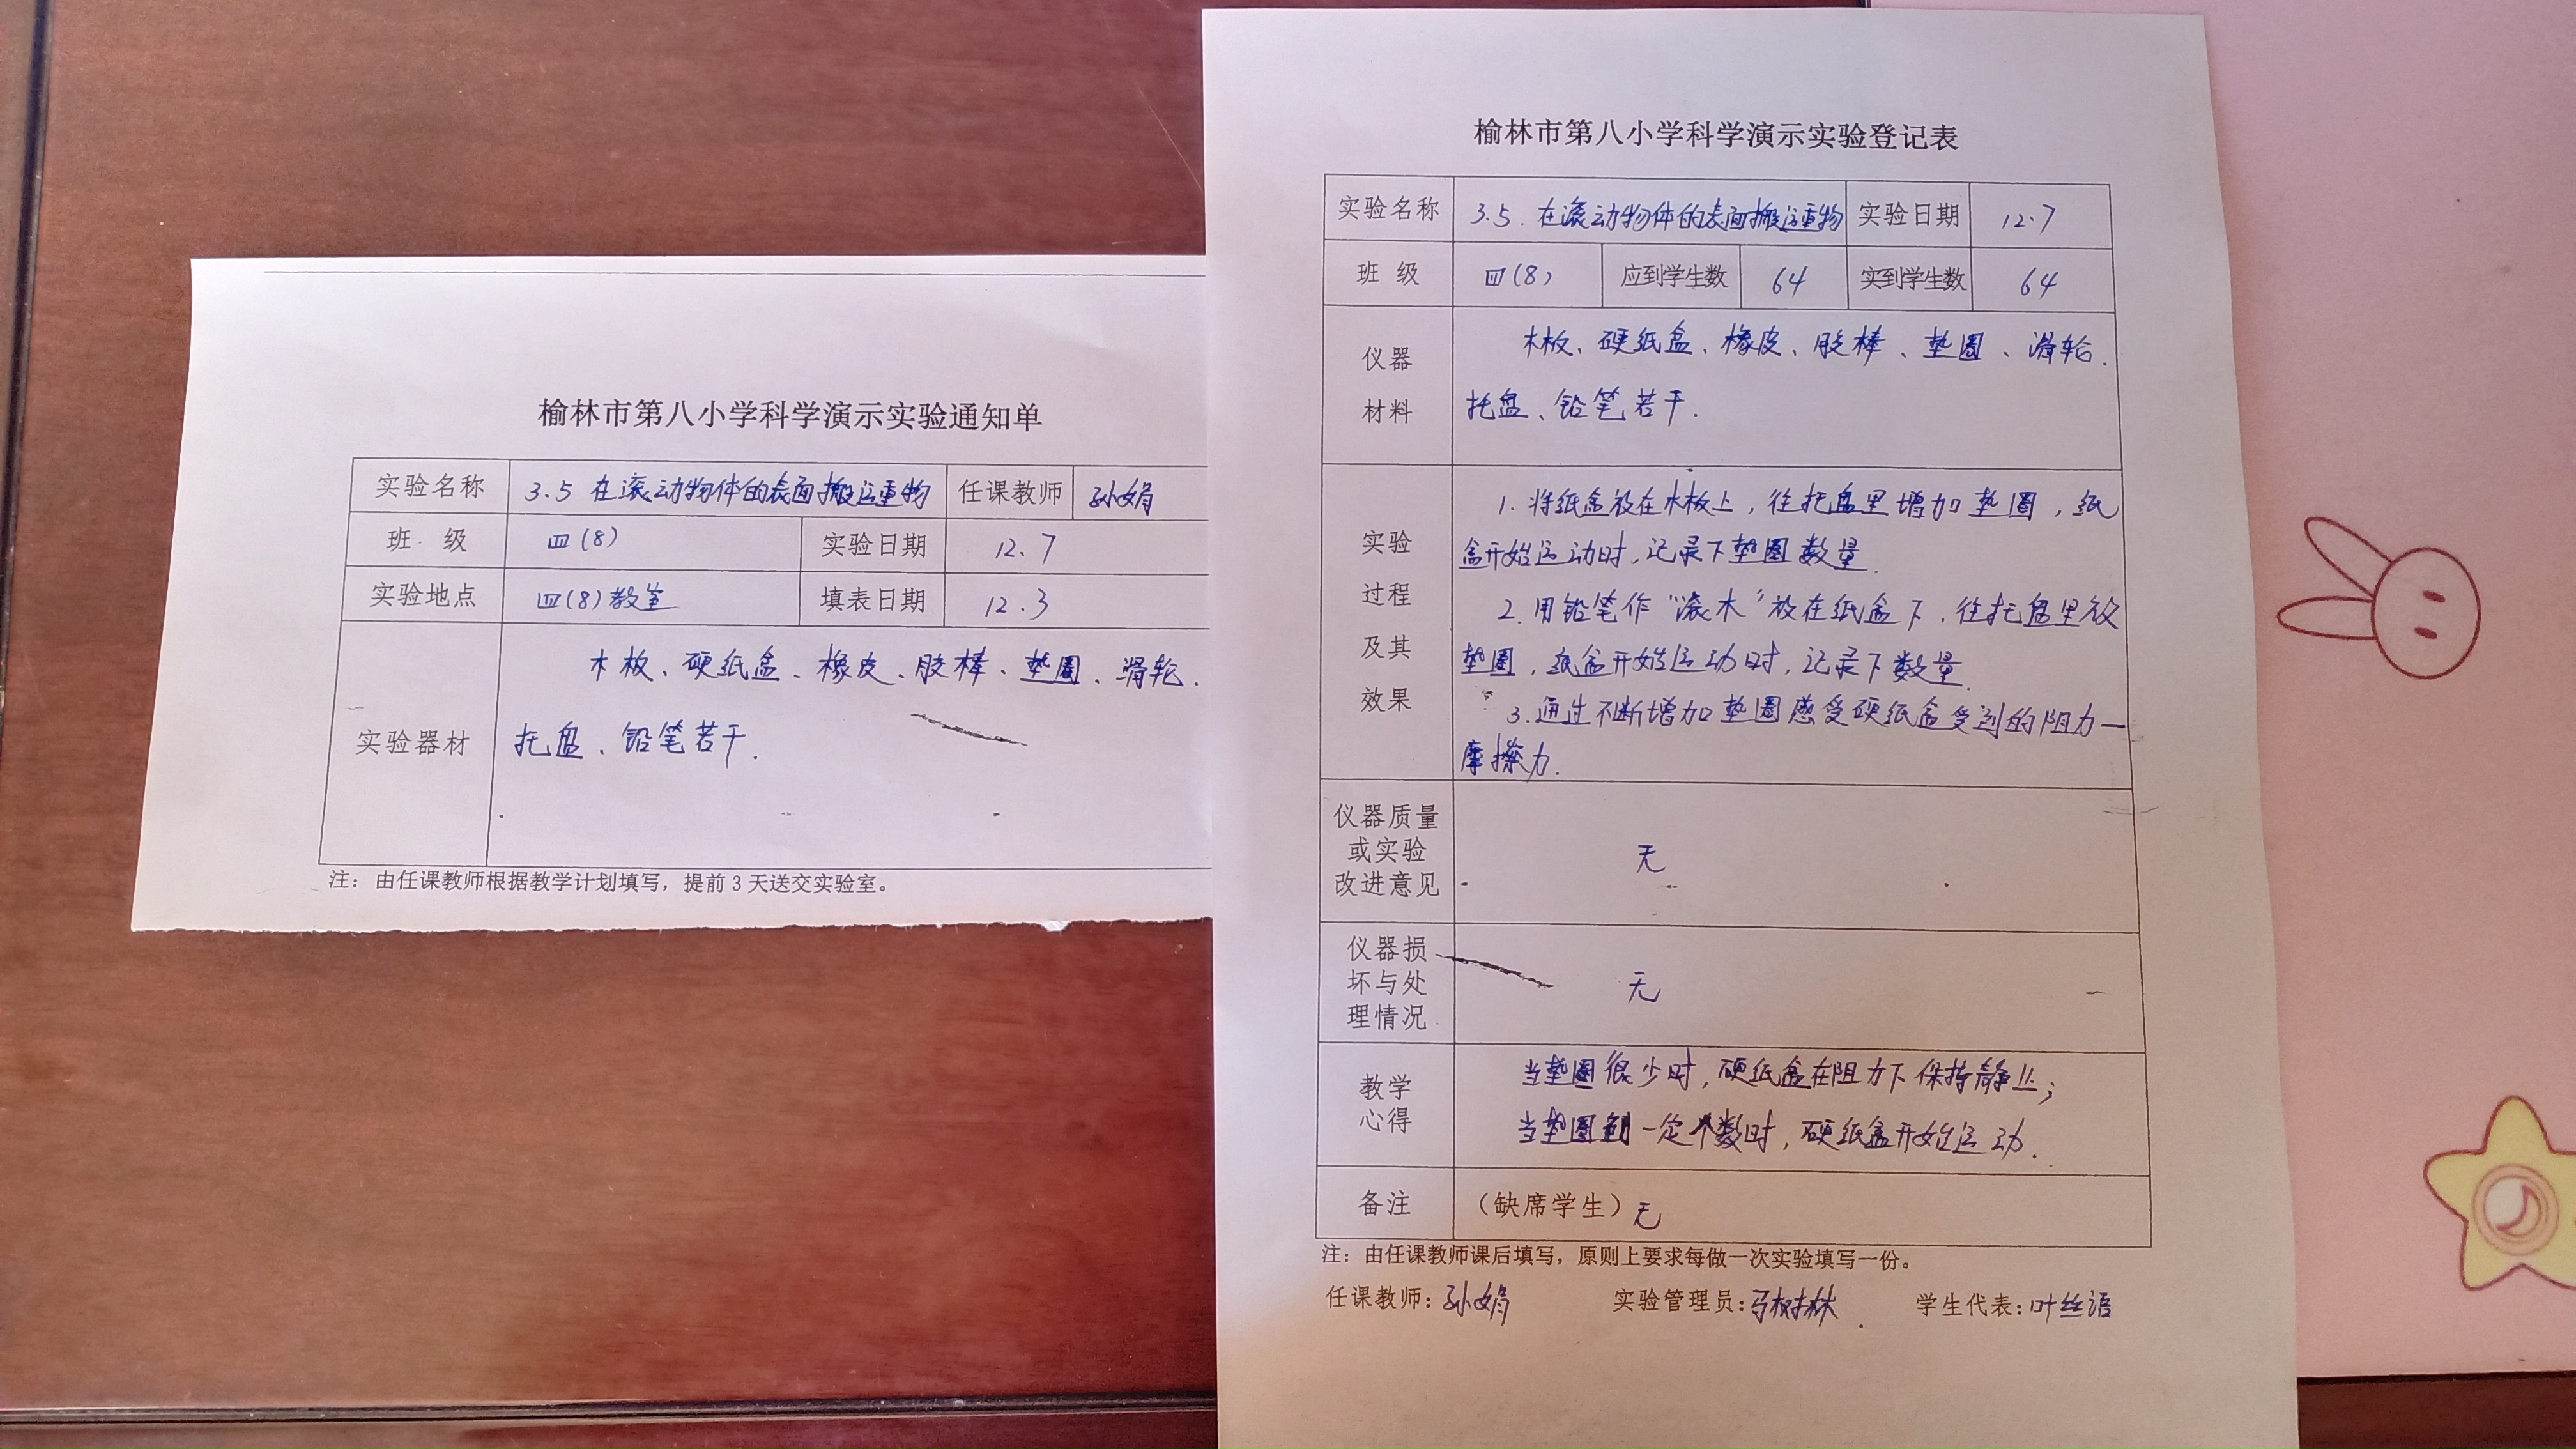 榆林市第八小学科学演示实验通知单
实验名称 3.5 在滚动物体的表面搬运重物 任课教师 孙娟
班 级 四(8) 实验日期 12.7
实验地点 四(8)教室 填表日期 12.3
实验器材 木板、硬纸盒、橡皮、胶棒、垫圈、滑轮.
托盘、铅笔若干.
注：由任课教师根据教学计划填写，提前3天送交实验室。
榆林市第八小学科学演示实验登记表
实验名称 3.5. 在滚动物体的表面搬运重物 实验日期 12.7
班 级 四(8) 应到学生数 64 实到学生数 64
仪器
材料
木板、硬纸盒、橡皮、胶棒、垫圈、滑轮.
托盘、铅笔若干.
实验
过程
及其
效果
1. 将纸盒放在木板上，往托盘里增加垫圈，纸
盒开始运动时，记录下垫圈数量.
2. 用铅笔作“滚木”放在纸盒下，往托盘里放
垫圈，纸盒开始运动时，记录下数量.
3. 通过不断增加垫圈感受硬纸盒受到的阻力—
摩擦力.
仪器质量
或实验
改进意见
无
仪器损
坏与处
理情况
无
教学
心得
当垫圈很少时，硬纸盒在阻力下保持静止；
当垫圈到一定个数时，硬纸盒开始运动.
备注 （缺席学生）无
注：由任课教师课后填写，原则上要求每做一次实验填写一份。
任课教师：孙娟 实验管理员：马树林. 学生代表：叶丝语